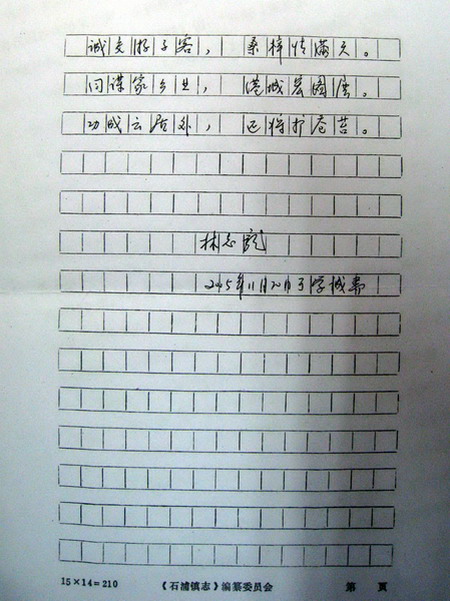 诚交游子客，桑梓情满天。
问谋家乡业，港城宏图展。
功成云居外，还将打苍苔。
林志龙
2005年11月20日于学城寓
15×14=210 《石浦镇志》编纂委员会 第 页